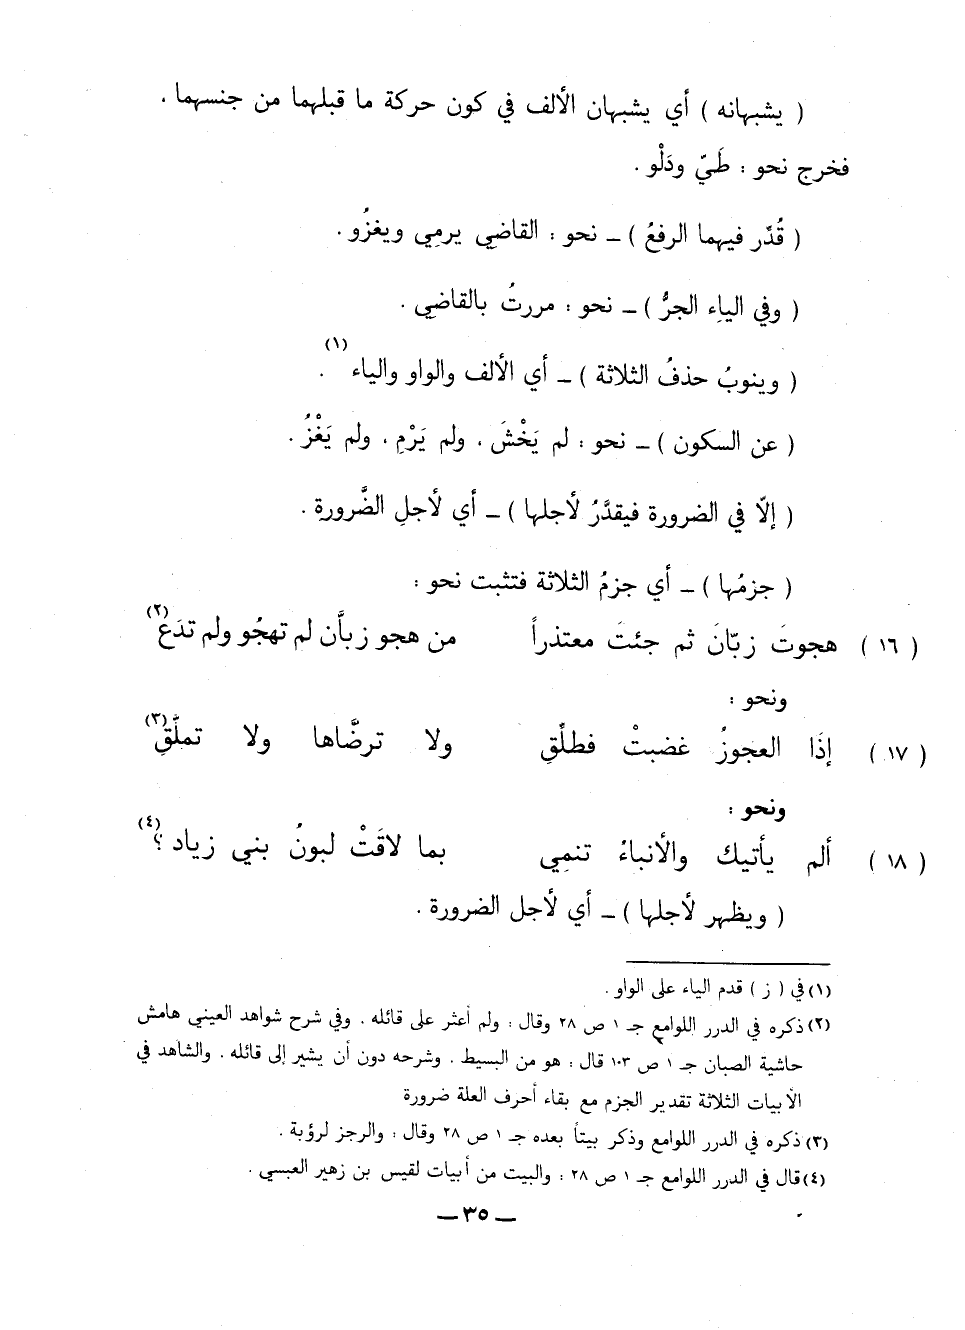 ( يشبهانه ) أي يشبهان الألف في كون حركة ما قبلهما من جنسهما ،
فخرج نحو : طَيّ ودَلْو .
( قُدّر فيهما الرفعُ ) ــ نحو : القاضِي يرمِي ويغزُو .
( وفي الياءِ الجرُّ ) ــ نحو : مررتُ بالقاضِي .
( وينوبُ حذفُ الثلاثة ) ــ أي الألف والواو والياء (١) .
( عن السكون ) ــ نحو : لم يَخْشَ ، ولم يَرْمِ ، ولم يَغْزُ .
( إلّا في الضرورة فيقدَّرُ لأجلها ) ــ أي لأجلِ الضَّرورةِ .
( جزمُها ) ــ أي جزمُ الثلاثة فتثبت نحو :
( ١٦ ) هجوتَ زبّانَ ثم جئتَ معتذراً من هجو زبَّان لم تهجُو ولم تدَع (٢)
ونحو :
( ١٧ ) إذَا العجوزُ غضبتْ فطلّقِ ولا ترضَّاها ولا تملَّقِ (٣)
ونحو :
( ١٨ ) ألم يأتيك والأنباءُ تنمِي بما لاقَتْ لبونُ بني زياد ؟ (٤)
( ويظهر لأجلها ) ــ أي لأجل الضرورة .
(١) في ( ز ) قدم الياء على الواو .
(٢) ذكره في الدرر اللوامع جـ ١ ص ٢٨ وقال : ولم أعثر على قائله . وفي شرح شواهد العيني هامش
حاشية الصبان جـ ١ ص ١٠٣ قال : هو من البسيط . وشرحه دون أن يشير إلى قائله . والشاهد في
الأبيات الثلاثة تقدير الجزم مع بقاء أحرف العلة ضرورة
(٣) ذكره في الدرر اللوامع وذكر بيتاً بعده جـ ١ ص ٢٨ وقال : والرجز لرؤبة .
(٤) قال في الدرر اللوامع جـ ١ ص ٢٨ : والبيت من أبيات لقيس بن زهير العبسي .
ــ ٣٥ ــ